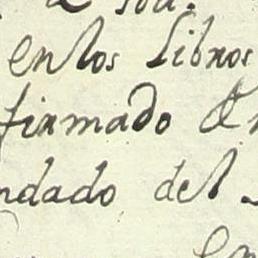 en los libros
firmado
ndado del